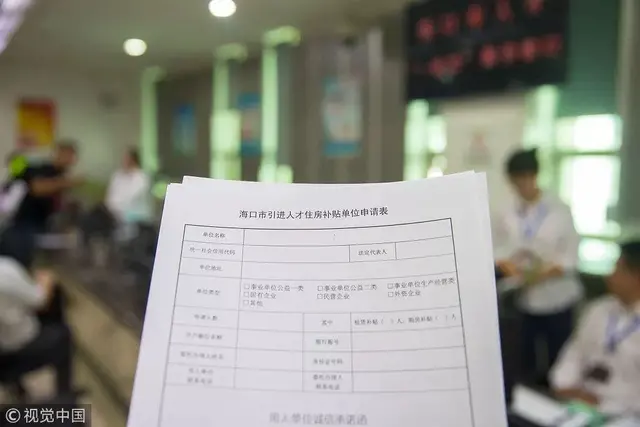 海口市引进人才住房补贴单位申请表
单位名称
统一社会信用代码 法定代表人
单位地址
单位类型 □事业单位公益一类 □事业单位公益二类 □事业单位生产经营类
□国有企业 □民营企业 □外资企业
□其他
申请人数 其中 租赁补贴（ ）人，购房补贴（ ）人
开户单位名称 银行账号
委托办理人姓名 身份证号码
用人单位
联系电话 委托办理人
联系电话
用人单位诚信承诺函
©视觉中国